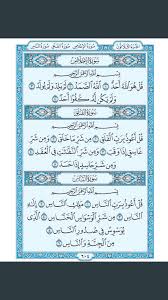 سُورَةُ الإِخْلَاصِ
بِسْمِ اللَّهِ الرَّحْمَٰنِ الرَّحِيمِ
قُلْ هُوَ اللَّهُ أَحَدٌ ١ اللَّهُ الصَّمَدُ ٢ لَمْ يَلِدْ وَلَمْ يُولَدْ ٣
وَلَمْ يَكُن لَّهُ كُفُوًا أَحَدٌ ٤
سُورَةُ الفَلَقِ
بِسْمِ اللَّهِ الرَّحْمَٰنِ الرَّحِيمِ
قُلْ أَعُوذُ بِرَبِّ الْفَلَقِ ١ مِن شَرِّ مَا خَلَقَ ٢ وَمِن شَرِّ
غَاسِقٍ إِذَا وَقَبَ ٣ وَمِن شَرِّ النَّفَّاثَاتِ فِي الْعُقَدِ ٤
وَمِن شَرِّ حَاسِدٍ إِذَا حَسَدَ ٥
سُورَةُ النَّاسِ
بِسْمِ اللَّهِ الرَّحْمَٰنِ الرَّحِيمِ
قُلْ أَعُوذُ بِرَبِّ النَّاسِ ١ مَلِكِ النَّاسِ ٢
إِلَٰهِ النَّاسِ ٣ مِن شَرِّ الْوَسْوَاسِ الْخَنَّاسِ ٤ الَّذِي
يُوَسْوِسُ فِي صُدُورِ النَّاسِ ٥
مِنَ الْجِنَّةِ وَالنَّاسِ ٦
٦٠٤